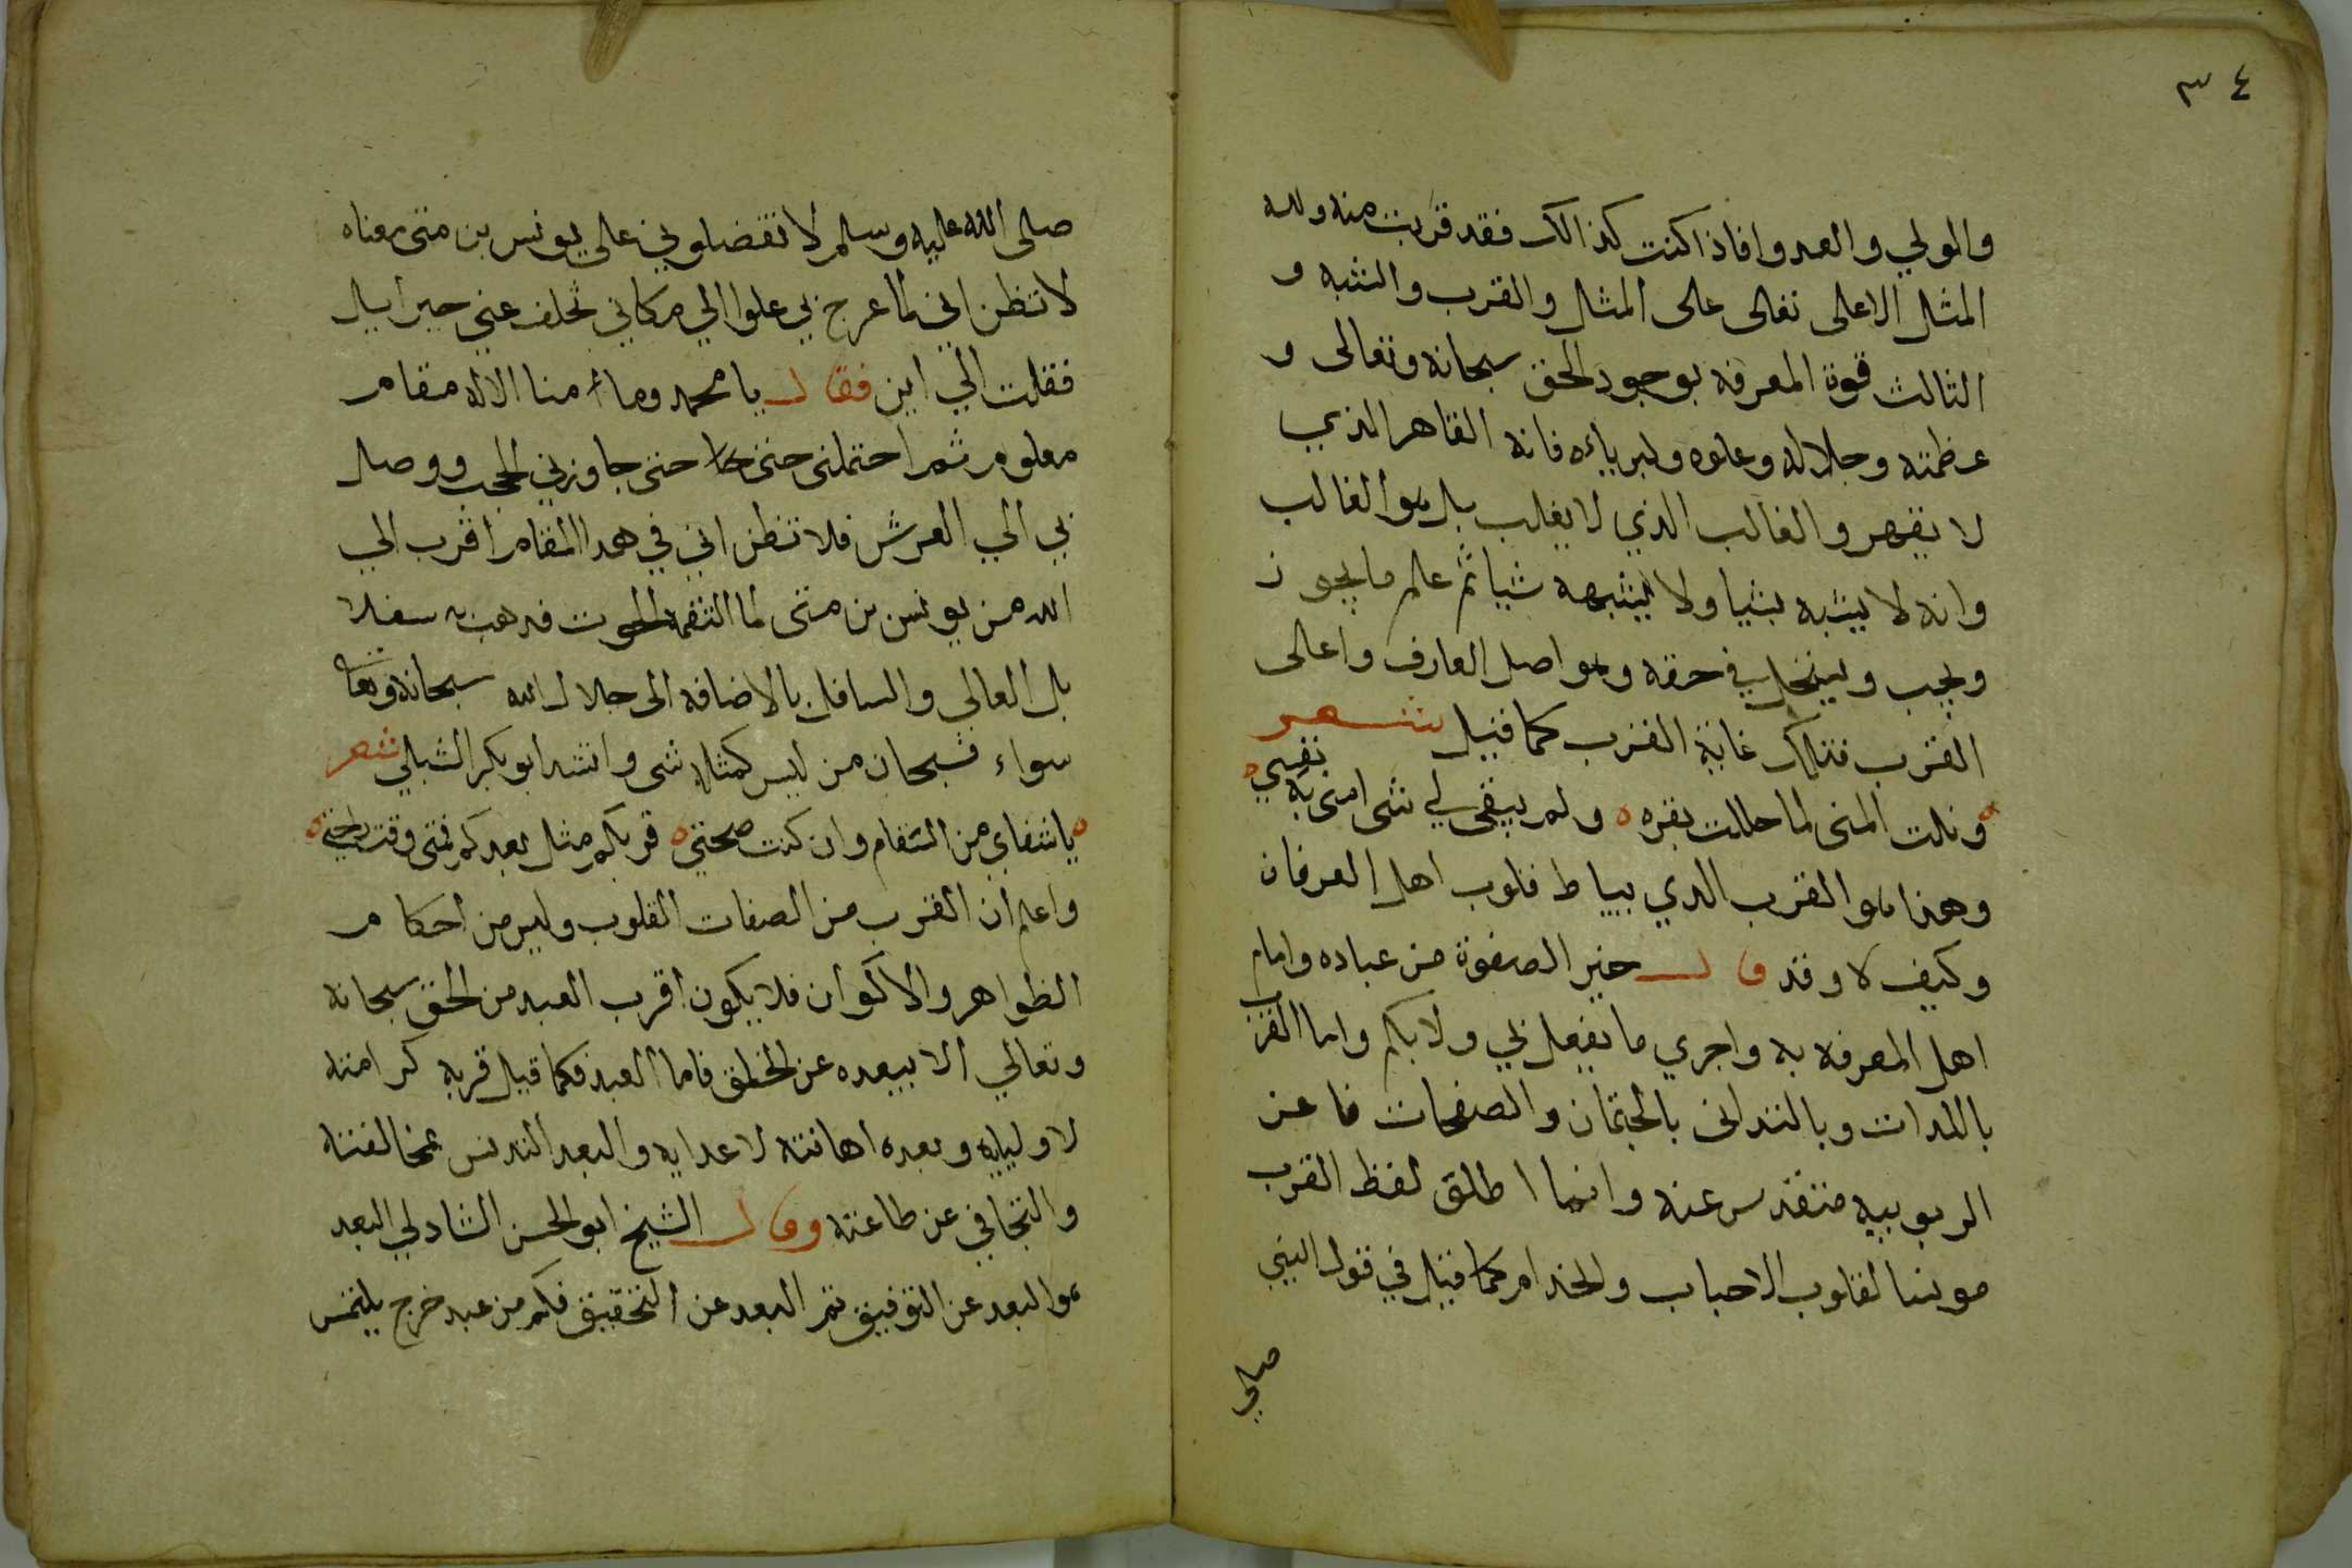 ٣٤
والمولي والعبد وافاذا كنت كذالك فقد قربت منه ولله
المثل الاعلى تعالى على المثل والقرب والشبه و
الثالث قوة المعرفه بوجود الحق سبحانه وتعالى و
عظمته وجلاله وعلوه وكبرياءه فانه القاهر الذي
لا يقهر والغالب الذي لا يغلب بل هو الغالب
وانه لا يشبه شيا ولا يشبهه شيا ثم علم ما يجوز
ويجب ويستحيل في حقه وهو اصل العارف واعالى
القرب فتلك غاية القرب كما قيل شعر
ونلت المنى لما حللت بقربه ولم يبقى لي شى امنى به نفسي
وهذا هو القرب الدي بساط قلوب اهل العرفان
وكيف لا وقد قال خير الصفوة من عباده وامام
اهل المعرفه به وادري ما يفعل بي ولا بكم واما القرب
بالذات وبالتدانى بالجثمان والصفحات فاعن
الربوبيه متقدس عنه وانما اطلق لفظ القرب
مونسا لقلوب الاحباب والخدام كما قيل في قول النبي
صلي
صلى الله عليه وسلم لا تفضلوني على يونس بن متى معناه
لا تظن اني لما عرج بي علوا الي مكاني تخلف عني جبراييل
فقلت الي اين فقال يا محمد وما منا الا له مقام
معلوم ثم احتملنى حتى حتى جاوزني الحجب ووصل
بي الي العرش فلا تظن اني في هدا المقام اقرب الي
الله من يونس بن متى لما التقمه الحوت فدهب به سفلا
بل العالي والسافل بالاضافه الى جلال الله سبحانه وتعا
سواء فسبحان من ليس كمثله شى وانشد ابو بكر الشبلي شعر
يا شفاي من السقام وان كنت صحتي قربكم مثل بعدكم فمتى وقت راحتي
واعلم ان القرب من الصفات القلوب وليس من احكام
الظواهر والاكوان فلا يكون اقرب العبد من الحق سبحانه
وتعالي الا ببعده عن الخلق فاما العبد فكما قيل قربه كرامته
لاوليايه وبعده اهانته لاعدايه والبعد التدنس بمخالفته
والتجافي عن طاعته وقال الشيخ ابو الحسن الشادلي البعد
هو البعد عن التوفيق ثم البعد عن التحقيق فكم من عبد خرج يلتمس